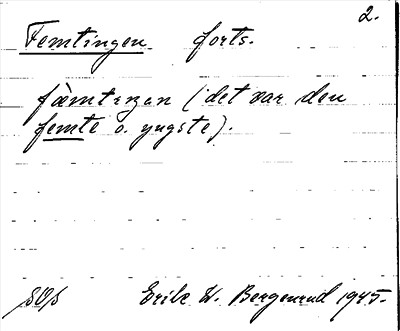 2.
Femtingen forts.
fämtingen (det var den
femte o. yngste).
Erik W. Bergenrud 1945.